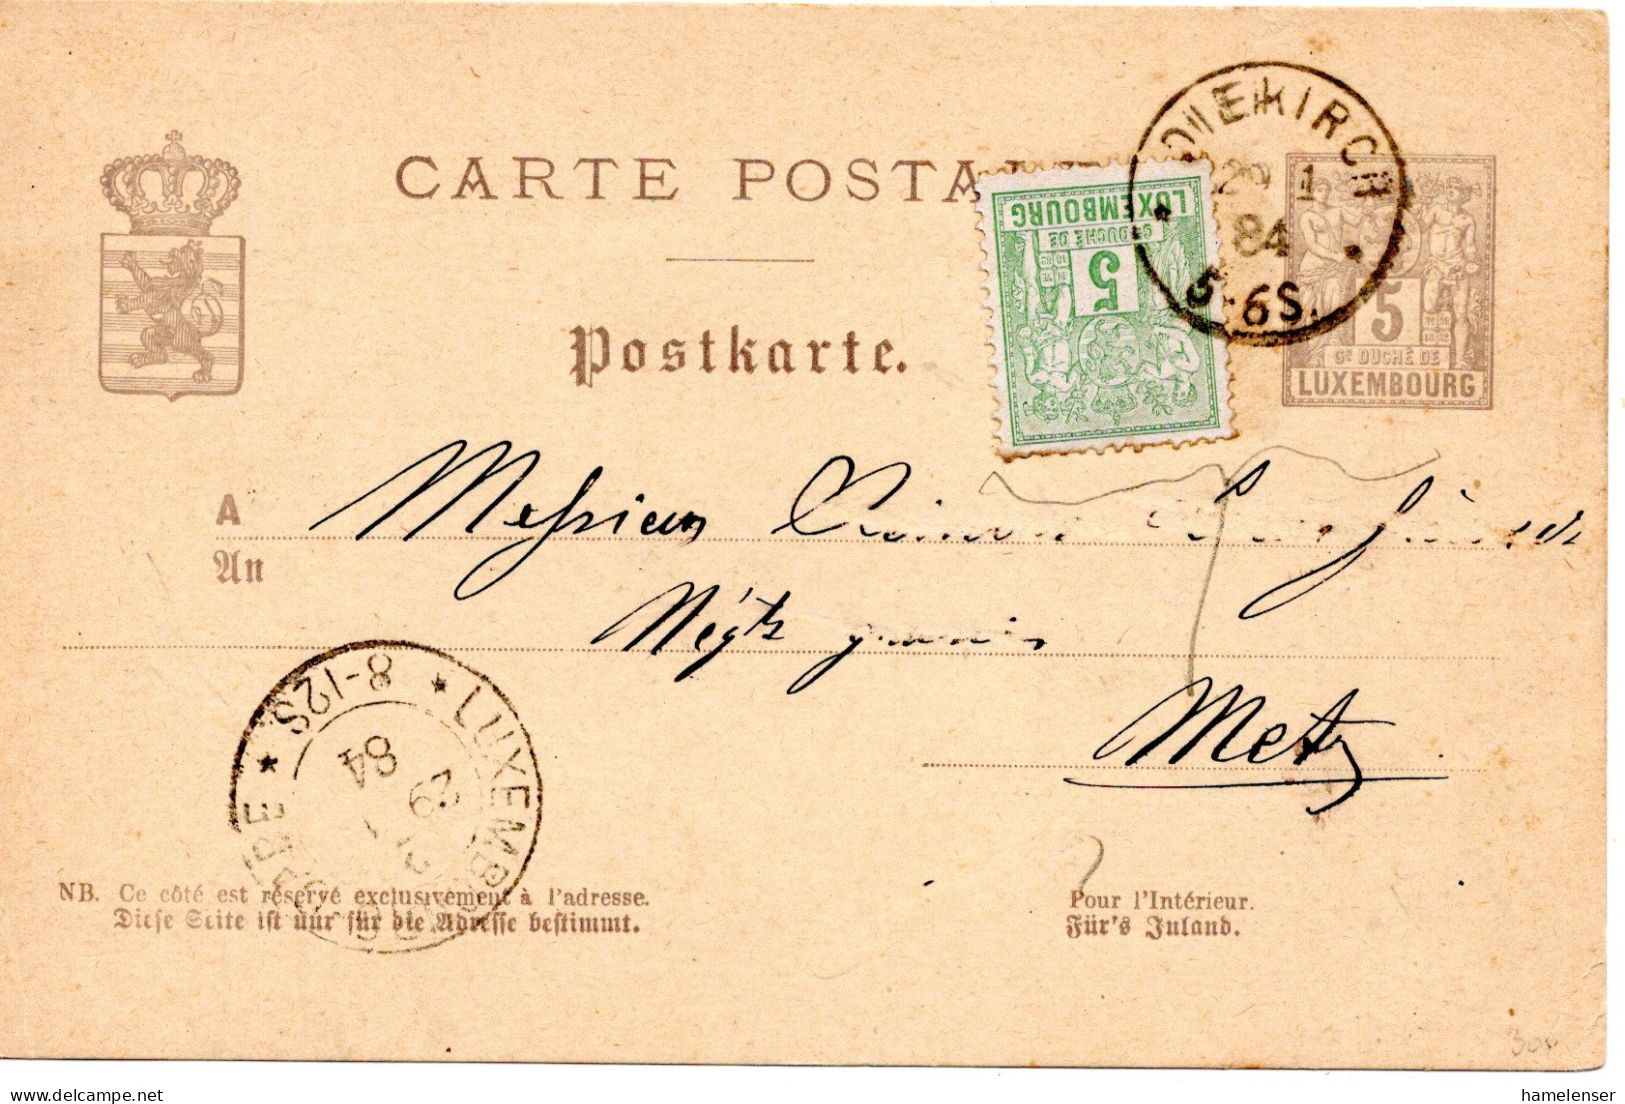 CARTE POSTA
Postkarte.
LUXEMBOURG
Gᴰ DUCHÉ DE
5
DIEKIRCH
29 1
84
5-6S.
5
Gᴰ DUCHÉ DE
LUXEMBOURG
A Messieurs
An
Négts
Metz
LUXEMB GARE
8-12S
29
84
NB. Ce côté est réservé exclusivement à l'adresse.
Diese Seite ist nur für die Adresse bestimmt.
Pour l'Intérieur.
Für's Inland.
delcampe.net
hamelenser